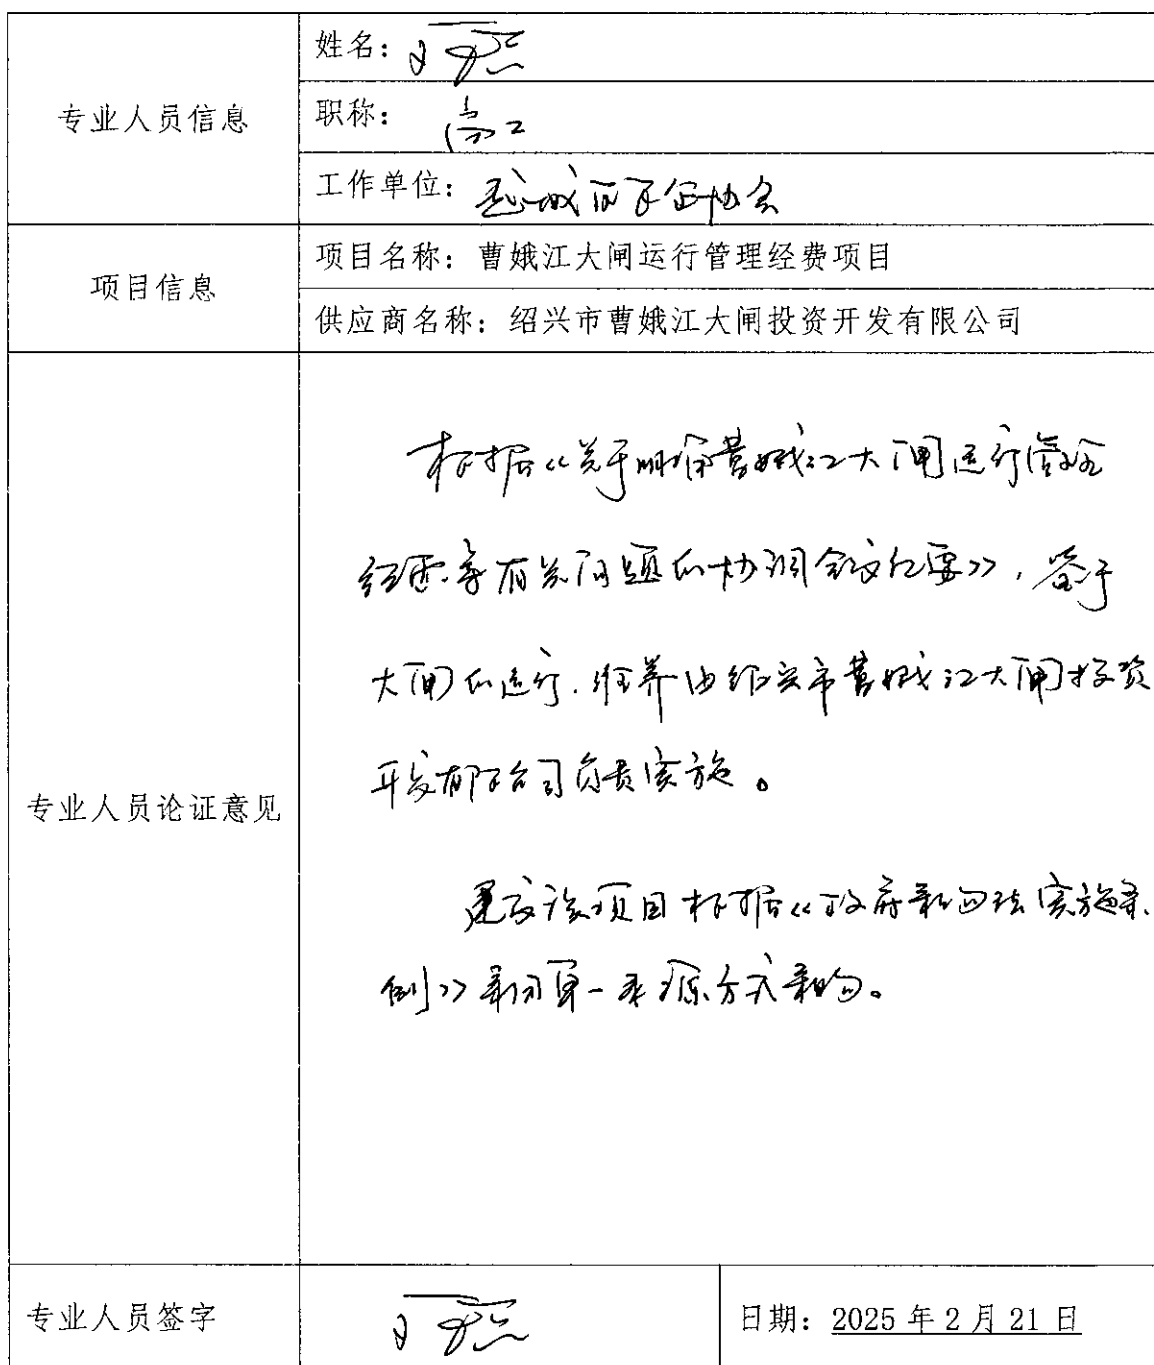 专业人员信息
姓名：
职称：高工
工作单位：越城区民企协会
项目信息
项目名称：曹娥江大闸运行管理经费项目
供应商名称：绍兴市曹娥江大闸投资开发有限公司
专业人员论证意见
根据《关于明确曹娥江大闸运行管理
经费等有关问题的协调会议纪要》，鉴于
大闸的运行、维养由绍兴市曹娥江大闸投资
开发有限公司负责实施。
建议该项目根据《政府采购法实施条
例》采用单一来源方式采购。
专业人员签字
日期：2025年2月21日